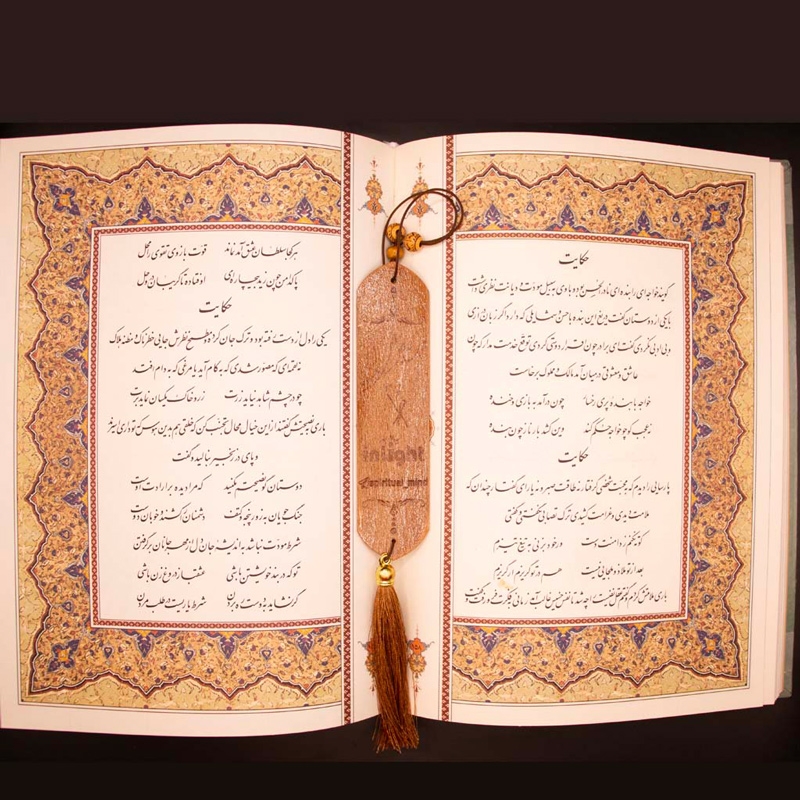 حکایت
گویند خواجه‌ای را بنده‌ای نادرالحسن بود و با وی به سبیل مودت و دیانت نظری داشت
با یکی از دوستان گفت دریغ این بنده با حسن و شمایلی که دارد اگر زبان درازی
و بی ادبی نکردی گفت ای برادر چون اقرار دوستی کردی توقع خدمت مدار که چون
عاشق و معشوقی در میان آمد مالک و مملوک برخاست
خواجه با بنده پری رخسار چون درآمد به بازی و خنده
نه عجب کو چو خواجه حکم کند وین کشد بار ناز چون بنده
حکایت
پارسایی را دیدم که به محبت شخصی گرفتار نه طاقت صبر و نه یارای گفتار چندان که
ملامت دیدی و غرامت کشیدی ترک تصابی نگفتی و گفتی
کوته نکنم ز دامنت دست ور خود بزنی به تیغ تیزم
بعد از تو ملاذ و ملجائی نیست هم در تو گریزم ار گریزم
باری ملامتش کردم و گفتم عقل نفیست را چه شد تا نفس خسیس غالب آمد زمانی به فکرت فرو رفت و گفت
هر کجا سلطان عشق آمد نماند قوت بازوی تقوی را محل
پاکدامن چون زید بیچاره‌ای اوفتاده تا گریبان در وحل
حکایت
یکی را دل از دست رفته بود و ترک جان کرده و مطمح نظرش جایی خطرناک و مظنه هلاک
نه لقمه‌ای که مصور شدی که به کام آید یا مرغی که به دام افتد
چو در چشم شاهد نیاید زرت زر و خاک یکسان نماید برت
باری به نصیحتش گفتند ازین خیال محال تجنب کن که خلقی هم بدین هوس که تو داری اسیرند
و پای در زنجیر بنالید و گفت
دوستان گو نصیحتم مکنید که مرا دیده بر ارادت اوست
جنگجویان به زور پنجه و کتف دشمنان را کشند و خوبان دوست
شرط مودت نباشد به اندیشه جان دل از مهر جانان برگرفتن
تو که در بند خویشتن باشی عشقباز دروغ زن باشی
گر نشاید به دوست ره بردن شرط یاریست در طلب مردن
inlight
spiritual_mind